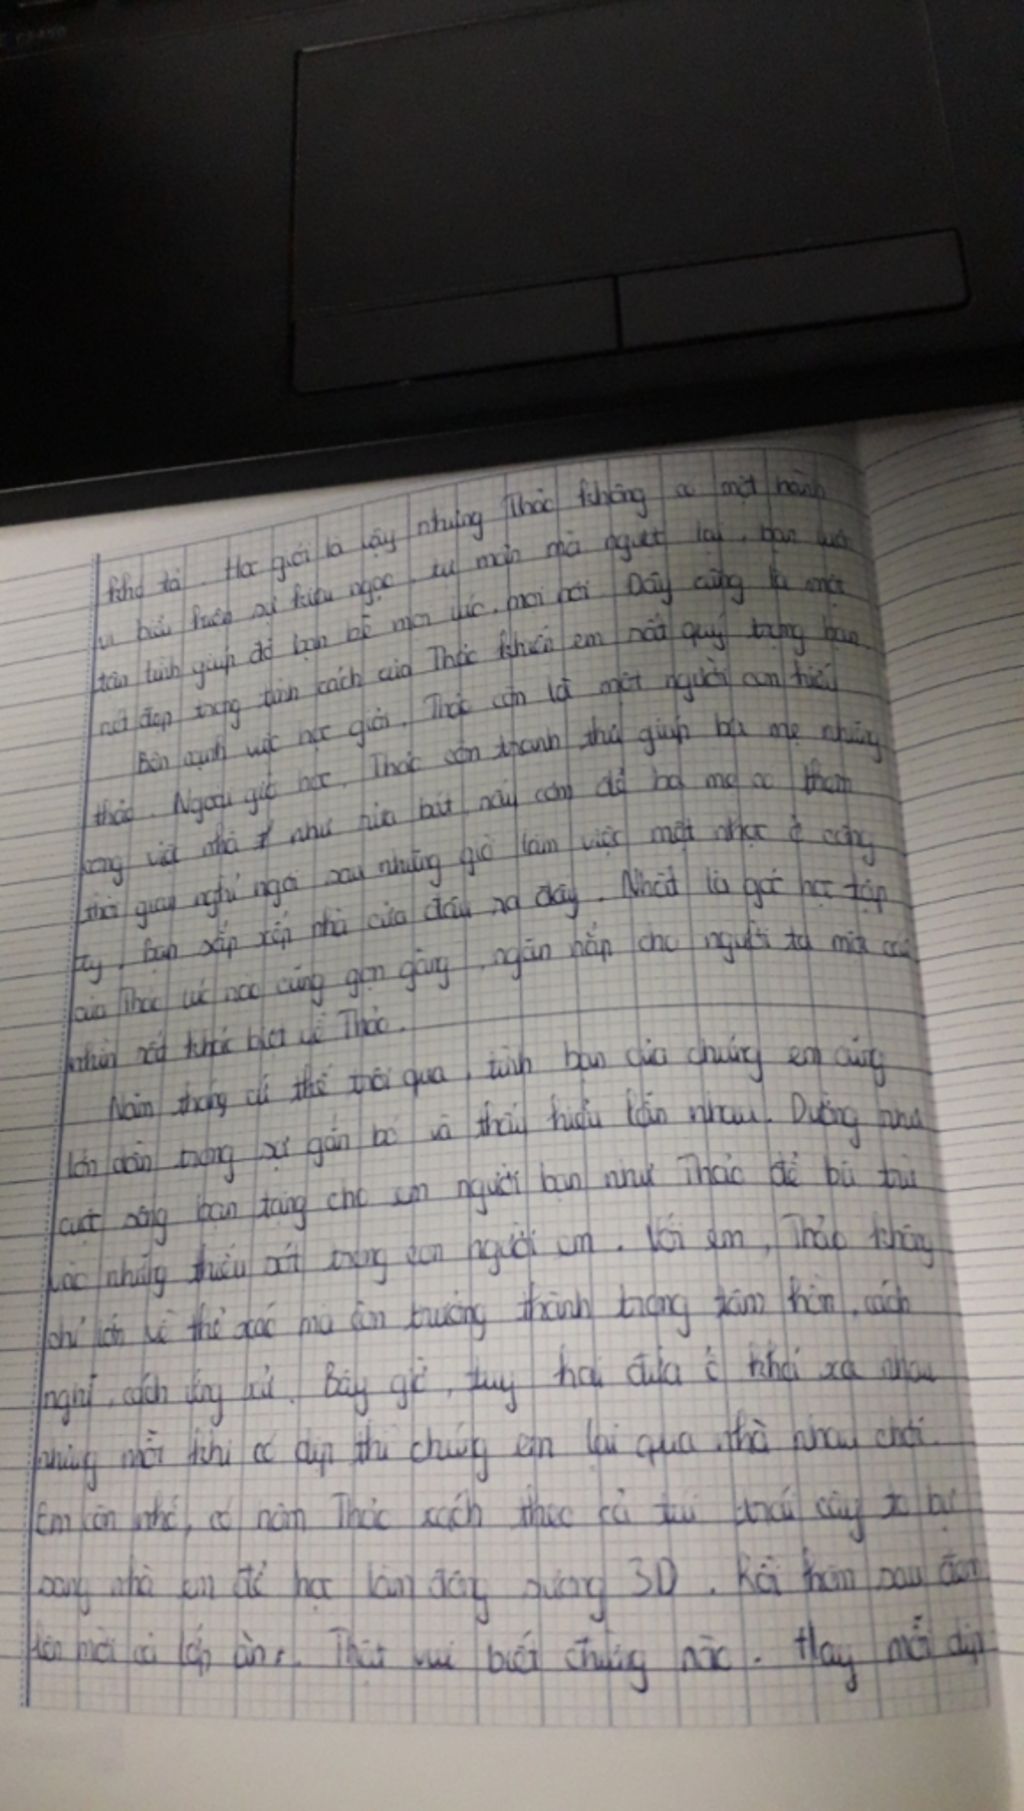 khó tả. Học giỏi là vậy nhưng Thảo không có một hành
vi biểu hiện sự kiêu ngạo, tự mãn mà ngược lại, bạn luôn
tận tình giúp đỡ bạn bè mọi lúc, mọi nơi. Đây cũng là một
nét đẹp trong tính cách của Thảo khiến em rất quý trọng bạn.
Bên cạnh việc học giỏi, Thảo còn là một người con hiếu
thảo. Ngoài giờ học, Thảo còn tranh thủ giúp ba mẹ những
công việc nhà như rửa bát, nấu cơm để ba mẹ có thêm
thời gian nghỉ ngơi sau những giờ làm việc mệt nhọc ở công
ty, bạn sắp xếp nhà cửa đâu ra đấy. Nhất là góc học tập
của Thảo lúc nào cũng gọn gàng, ngăn nắp cho người ta một cái
nhìn rất khác biệt về Thảo.
Năm tháng cứ thế trôi qua, tình bạn của chúng em cũng
lớn dần trong sự gắn bó và thấu hiểu lẫn nhau. Dường như
cuộc sống ban tặng cho em người bạn như Thảo để bù trừ
những thiếu sót trong con người em. Với em, Thảo không
chỉ lớn về thể xác mà còn trưởng thành trong tâm hồn, cách
nghĩ, cách ứng xử. Bây giờ, tuy hai đứa ở khá xa nhau
nhưng mỗi khi có dịp thì chúng em lại qua nhà nhau chơi.
Em còn nhớ, có năm Thảo xách theo cả túi trái cây to bự
sang nhà em để học làm đông sương 3D. Rồi hôm sau đem
lên mời cả lớp ăn. Thật vui biết chừng nào. Hay mỗi dịp